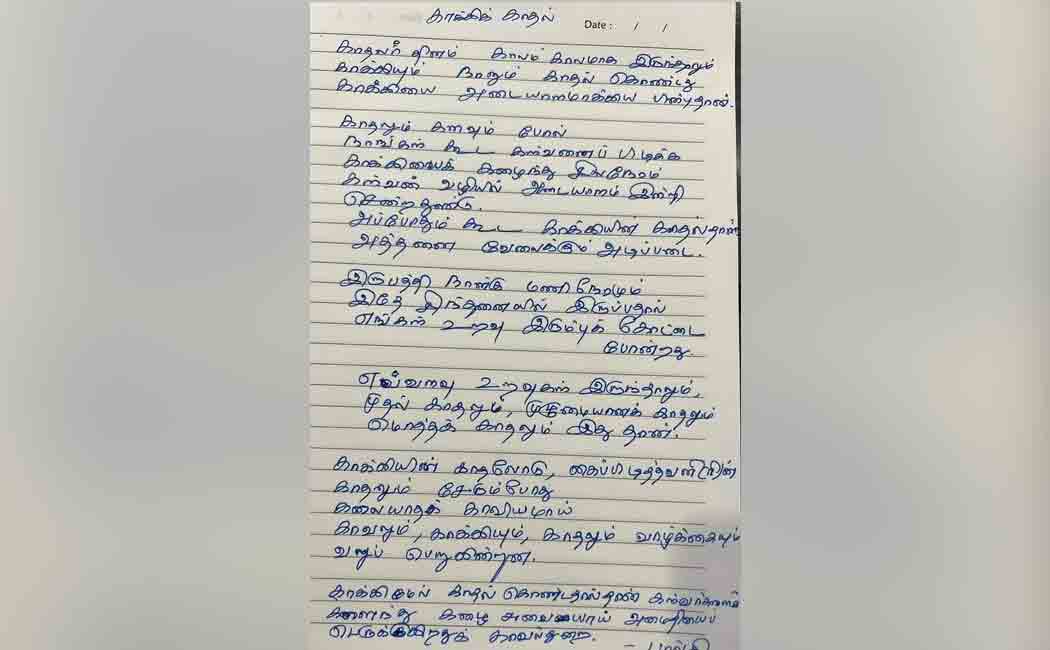 காக்கிக் காதல்
Date : / /
காதலர் தினம் காலம் காலமாக இருந்தாலும்
காக்கியும் நானும் காதல் கொண்டது
காக்கியை அடையாளமாக்கிய பின்புதான்.
காதலும் களவும் போல்
நாங்கள் கூட கள்வனைப் பிடிக்க
காக்கியைக் களைந்து சிலநேரம்
கள்வன் வழியில் அடையாளம் இன்றி
சென்றதுண்டு.
அப்போதும் கூட காக்கியின் காதல்தான்
அத்தனை வேலைக்கும் அடிப்படை.
இருபத்தி நான்கு மணிநேரமும்
இதே சிந்தனையில் இருப்பதால்
எங்கள் உறவு இரும்புக் கோட்டை
போன்றது.
எவ்வளவு உறவுகள் இருந்தாலும்,
முதல் காதலும், முழுமையானக் காதலும்
மொத்தக் காதலும் இது தான்.
காக்கியின் காதலோடு, கைப்பிடித்தவளி(ரி)ன்
காதலும் சேரும்போது
கலையாதக் காவியமாய்
காவலும், காக்கியும், காதலும் வாழ்க்கையும்
வலுப் பெறுகின்றன.
காக்கிமேல் காதல் கொண்டதால்தான்
களைந்து களை அமைதியைப்
காவல்துறை.